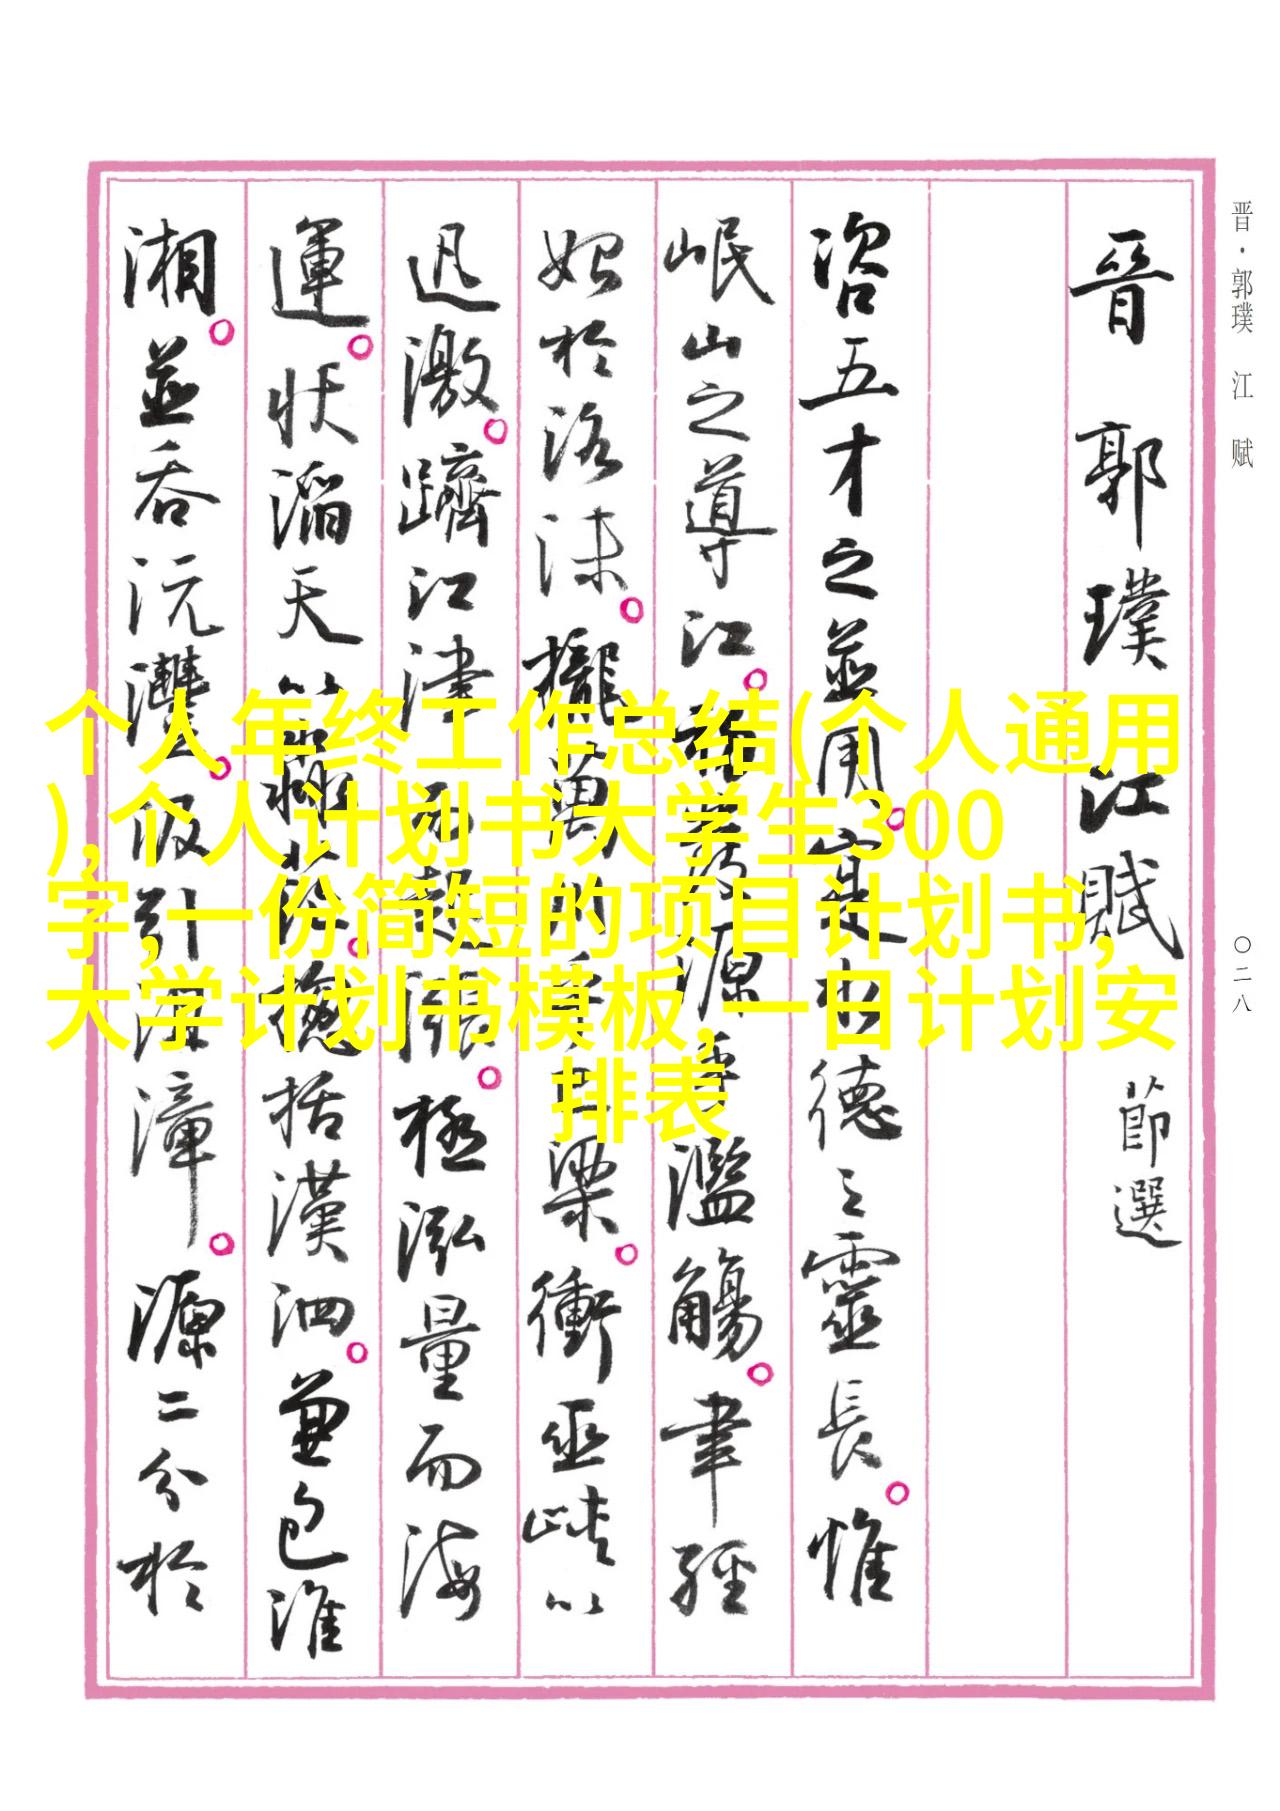 晋·郭璞 江 赋
〇二八
晉 郭璞 江賦 節選
咨五才之並用。寔水德之靈長。惟
岷山之導江。初發源乎濫觴。聿經
始於洛沫。攏萬川乎巴梁。衝巫峽以
迅激。躋江津而起漲。極泓量而海
運。狀滔天以淼茫。總括漢泗。兼包淮
湘。並吞沅澧。汲引沮漳。源二分於
个人年终工作总结(个人通用
),个人计划书大学生300
字,一份简短的项目计划书,
大学计划书模板,一日计划安
排表